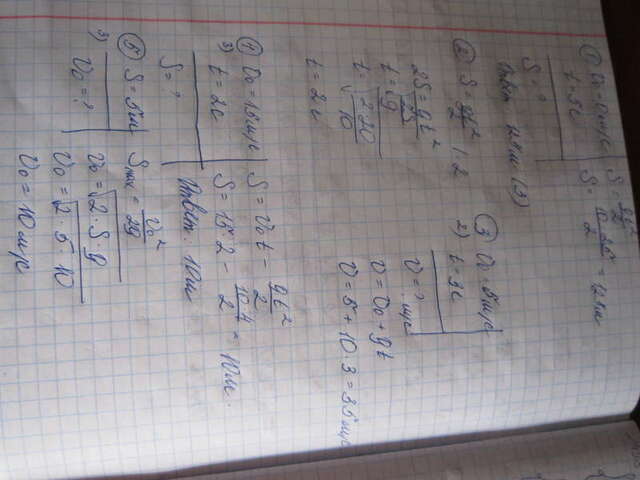 ① V₀ = 0 м/с
t = 5 с
S = ?
S = gt²/2
S = 10 · 25/2 = 125 м
Ответ: 125 м (3)
② S = gt²/2 | · 2
2S = gt²
t = √2S/g
t = √2·20/10
t = 2 с
③ V₀ = 5 м/с
2) t = 3 с
V = ? м/с
V = V₀ + gt
V = 5 + 10 · 3 = 35 м/с
④ V₀ = 15 м/с
3) t = 2 с
S = ?
S = V₀t − gt²/2
S = 15 · 2 − 10·4/2 = 10 м.
Ответ: 10 м
⑤ S = 5 м
3) V₀ = ?
Sмах = V₀²/2g
V₀ = √2·S·g
V₀ = √2·5·10
V₀ = 10 м/с